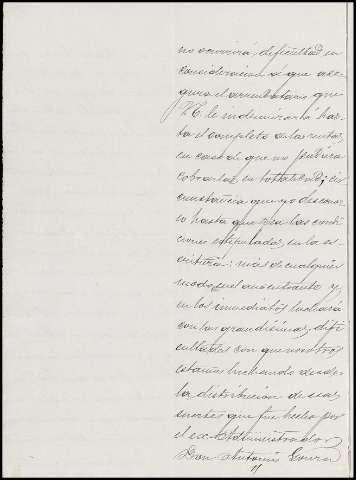 no ocurrirá dificultad en
consideracion á que ase
gura el arrendatario que
V.E. le indemnizará has
ta el completo de las rentas,
en caso de que no pudiera
cobrarlas en totalidad; cir
cunstancia que yo descono
co hasta que vea las condi
ciones estipuladas, en la es
critura: mas de cualquier
modo, en el año entrante y
en los inmediatos luchará
con las grandisimas difi
cultades con que nosotros
estamos luchando desde
la distribucion de esas
suertes que fue hecha por
el ex-Administrador
Don Antonio